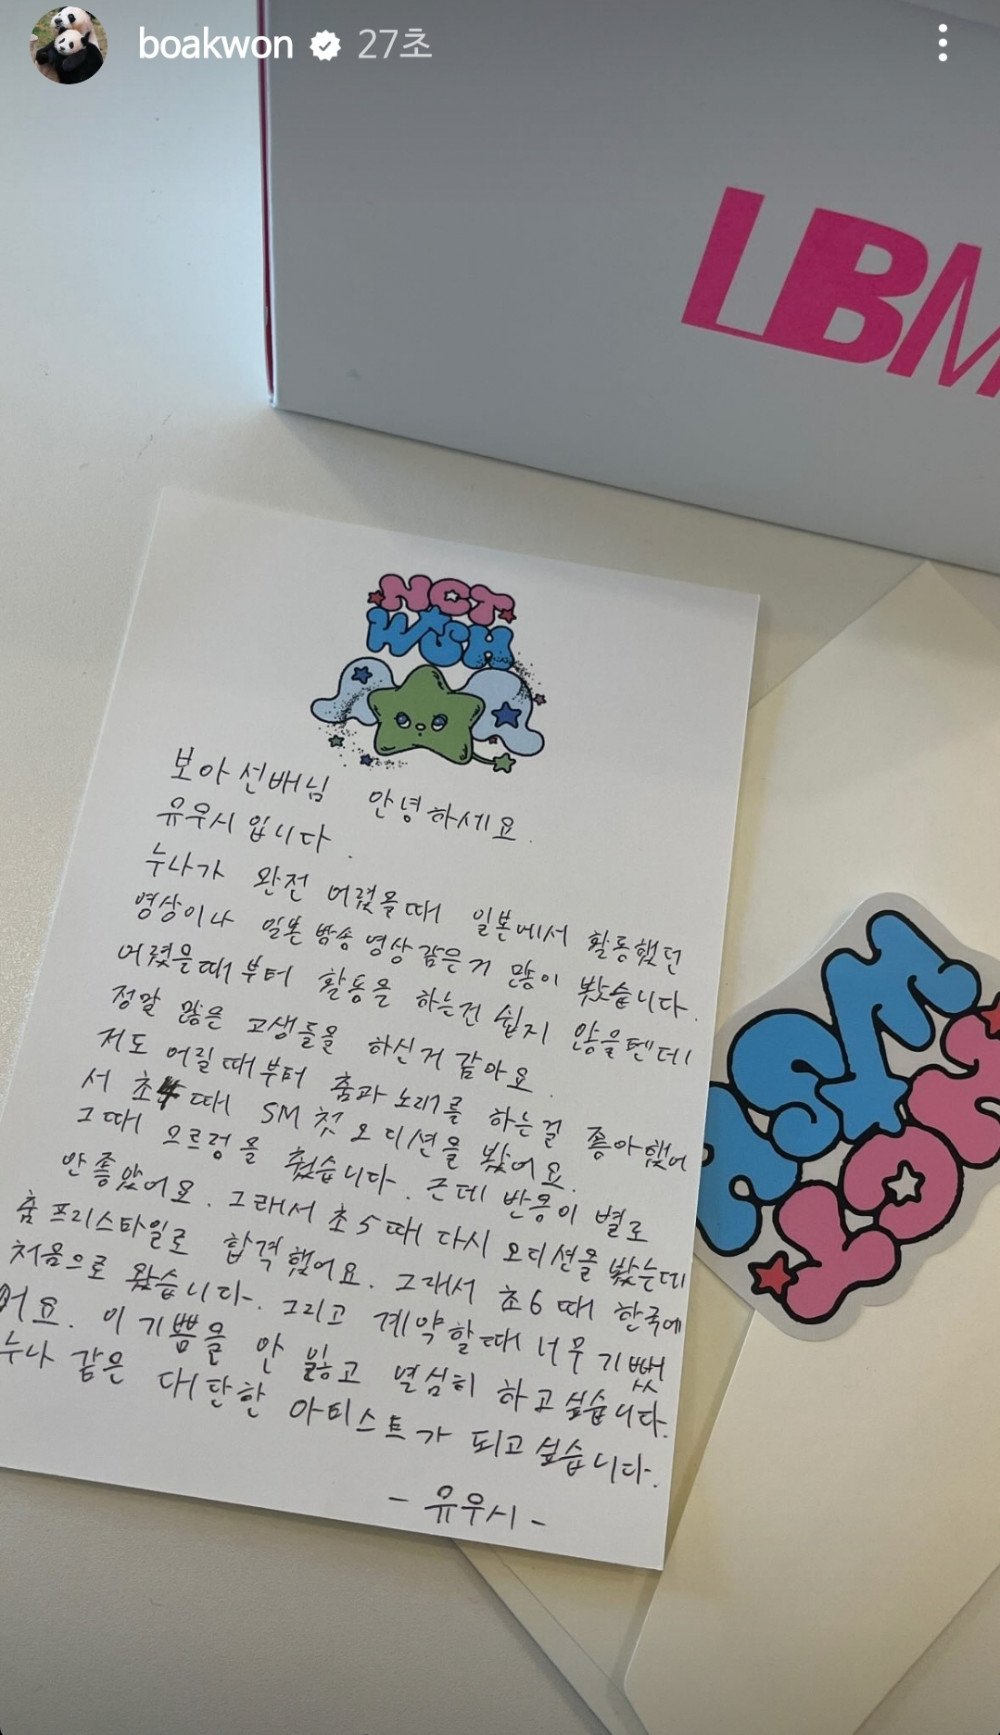 boakwon 27초
LBM
NCT
WISH
보아선배님 안녕하세요.
유우시입니다.
누나가 완전 어렸을때 일본에서 활동했던
영상이나 일본 방송 영상 같은거 많이 봤습니다.
어렸을때부터 활동을 하는건 쉽지 않을텐데
정말 많은 고생들을 하신거 같아요.
저도 어릴때부터 춤과 노래를 하는걸 좋아했어
서 초4 때 SM 첫 오디션을 봤어요.
그때 으르렁을 췄습니다. 근데 반응이 별로
안좋았어요. 그래서 초5때 다시 오디션을 봤는데
춤 프리스타일로 합격했어요. 그래서 초6 때 한국에
처음으로 왔습니다. 그리고 계약할때 너무 기뻤
어요. 이 기쁨을 안 잃고 열심히 하고싶습니다.
누나 같은 대단한 아티스트가 되고싶습니다.
- 유우시 -
NCT
WISH